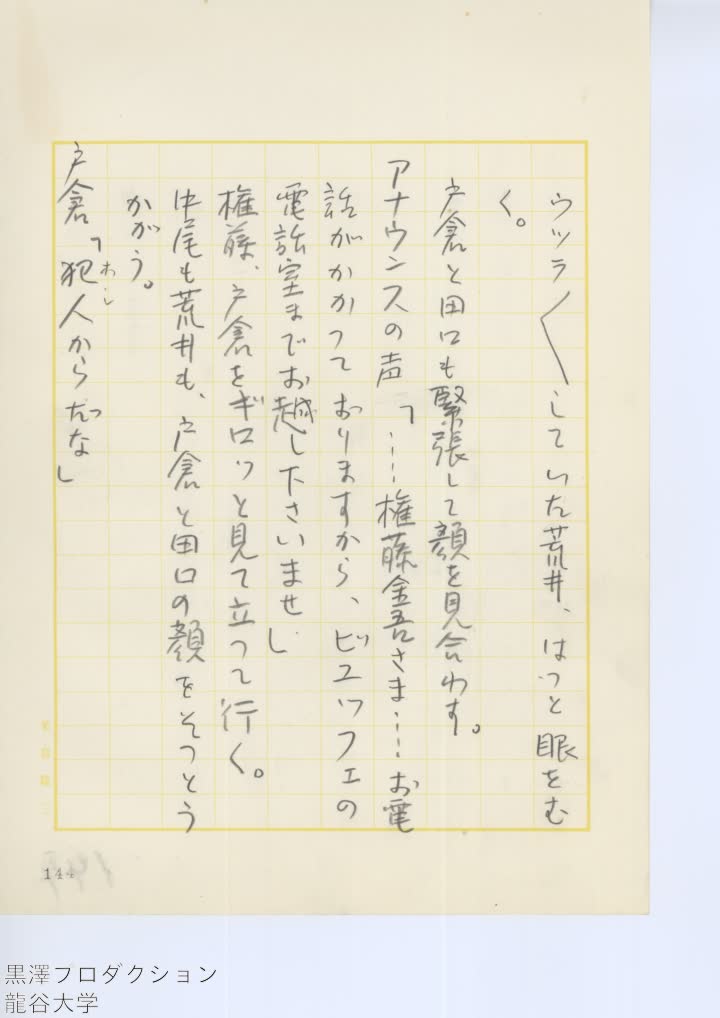 ウツラ〳〵していた荒井、はつと眼をむ
く。
戸倉と田口も緊張して顔を見合わす。
アナウンスの声「……権藤金吾さま……お電
話がかかつておりますから、ビユッフェの
電話室までお越し下さいませ」
権藤、戸倉をギロッと見て立つて行く。
中尾も荒井も、戸倉と田口の顔をそつとう
かがう。
戸倉「犯人からだな」
144
黒澤プロダクション
龍谷大学